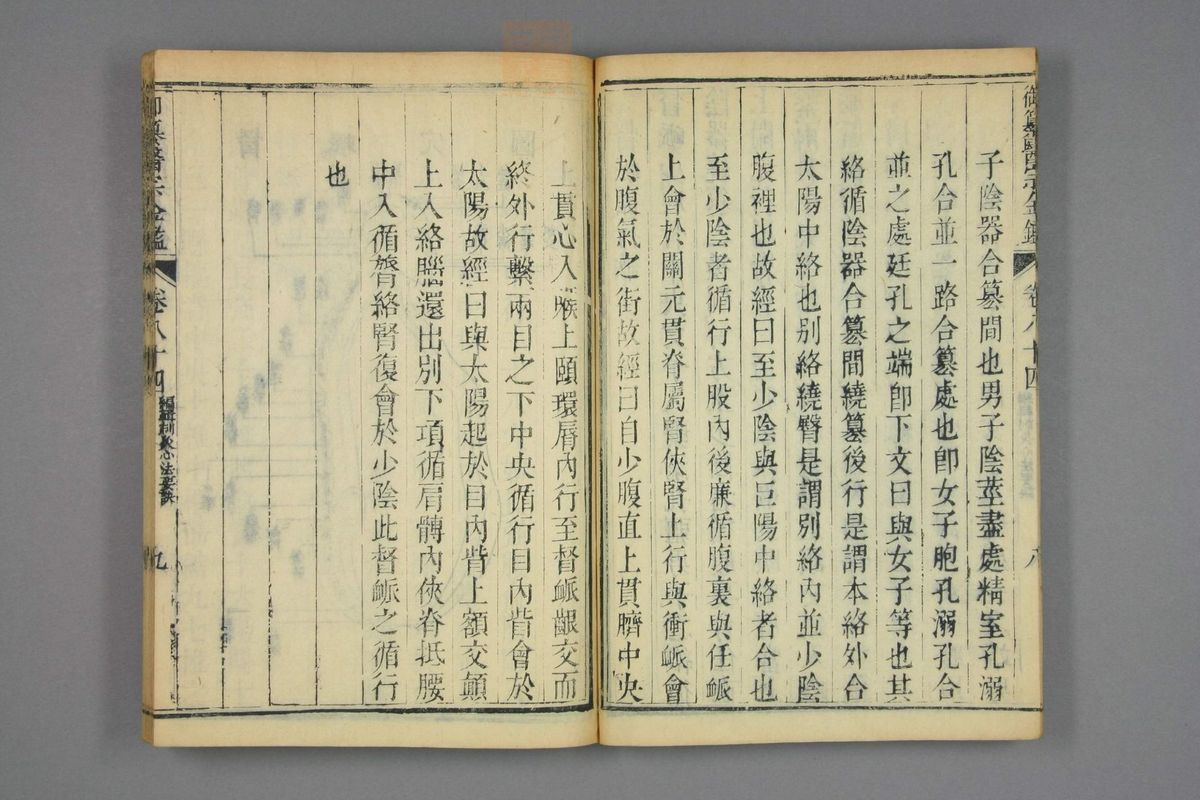 御纂醫宗金鑑
卷八十四
八
子陰器合篡間也男子陰莖盡處精室孔溺
孔合並一路合篡處也卽女子胞孔溺孔合
並之處廷孔之端卽下文曰與女子等也其
絡循陰器合篡間繞篡後行是謂本絡外合
太陽中絡也别絡繞臀是謂别絡内並少陰
腹裡也故經曰至少陰與巨陽中絡者合也
至少陰者循行上股内後廉循腹裏與任䘑
上會於關元貫脊屬腎俠腎上行與衝䘑會
於腹氣之街故經曰自少腹直上貫臍中央
上貫心入喉上頤環唇内行至督䘑齦交而
終外行繫兩目之下中央循行目内眥會於
太陽故經曰與太陽起於目内眥上額交顛
上入絡腦還出别下項循肩髆内俠脊抵腰
中入循膂絡腎復會於少陰此督䘑之循行
也
御纂醫宗金鑑
卷八十四
編輯刺灸心法要訣
九